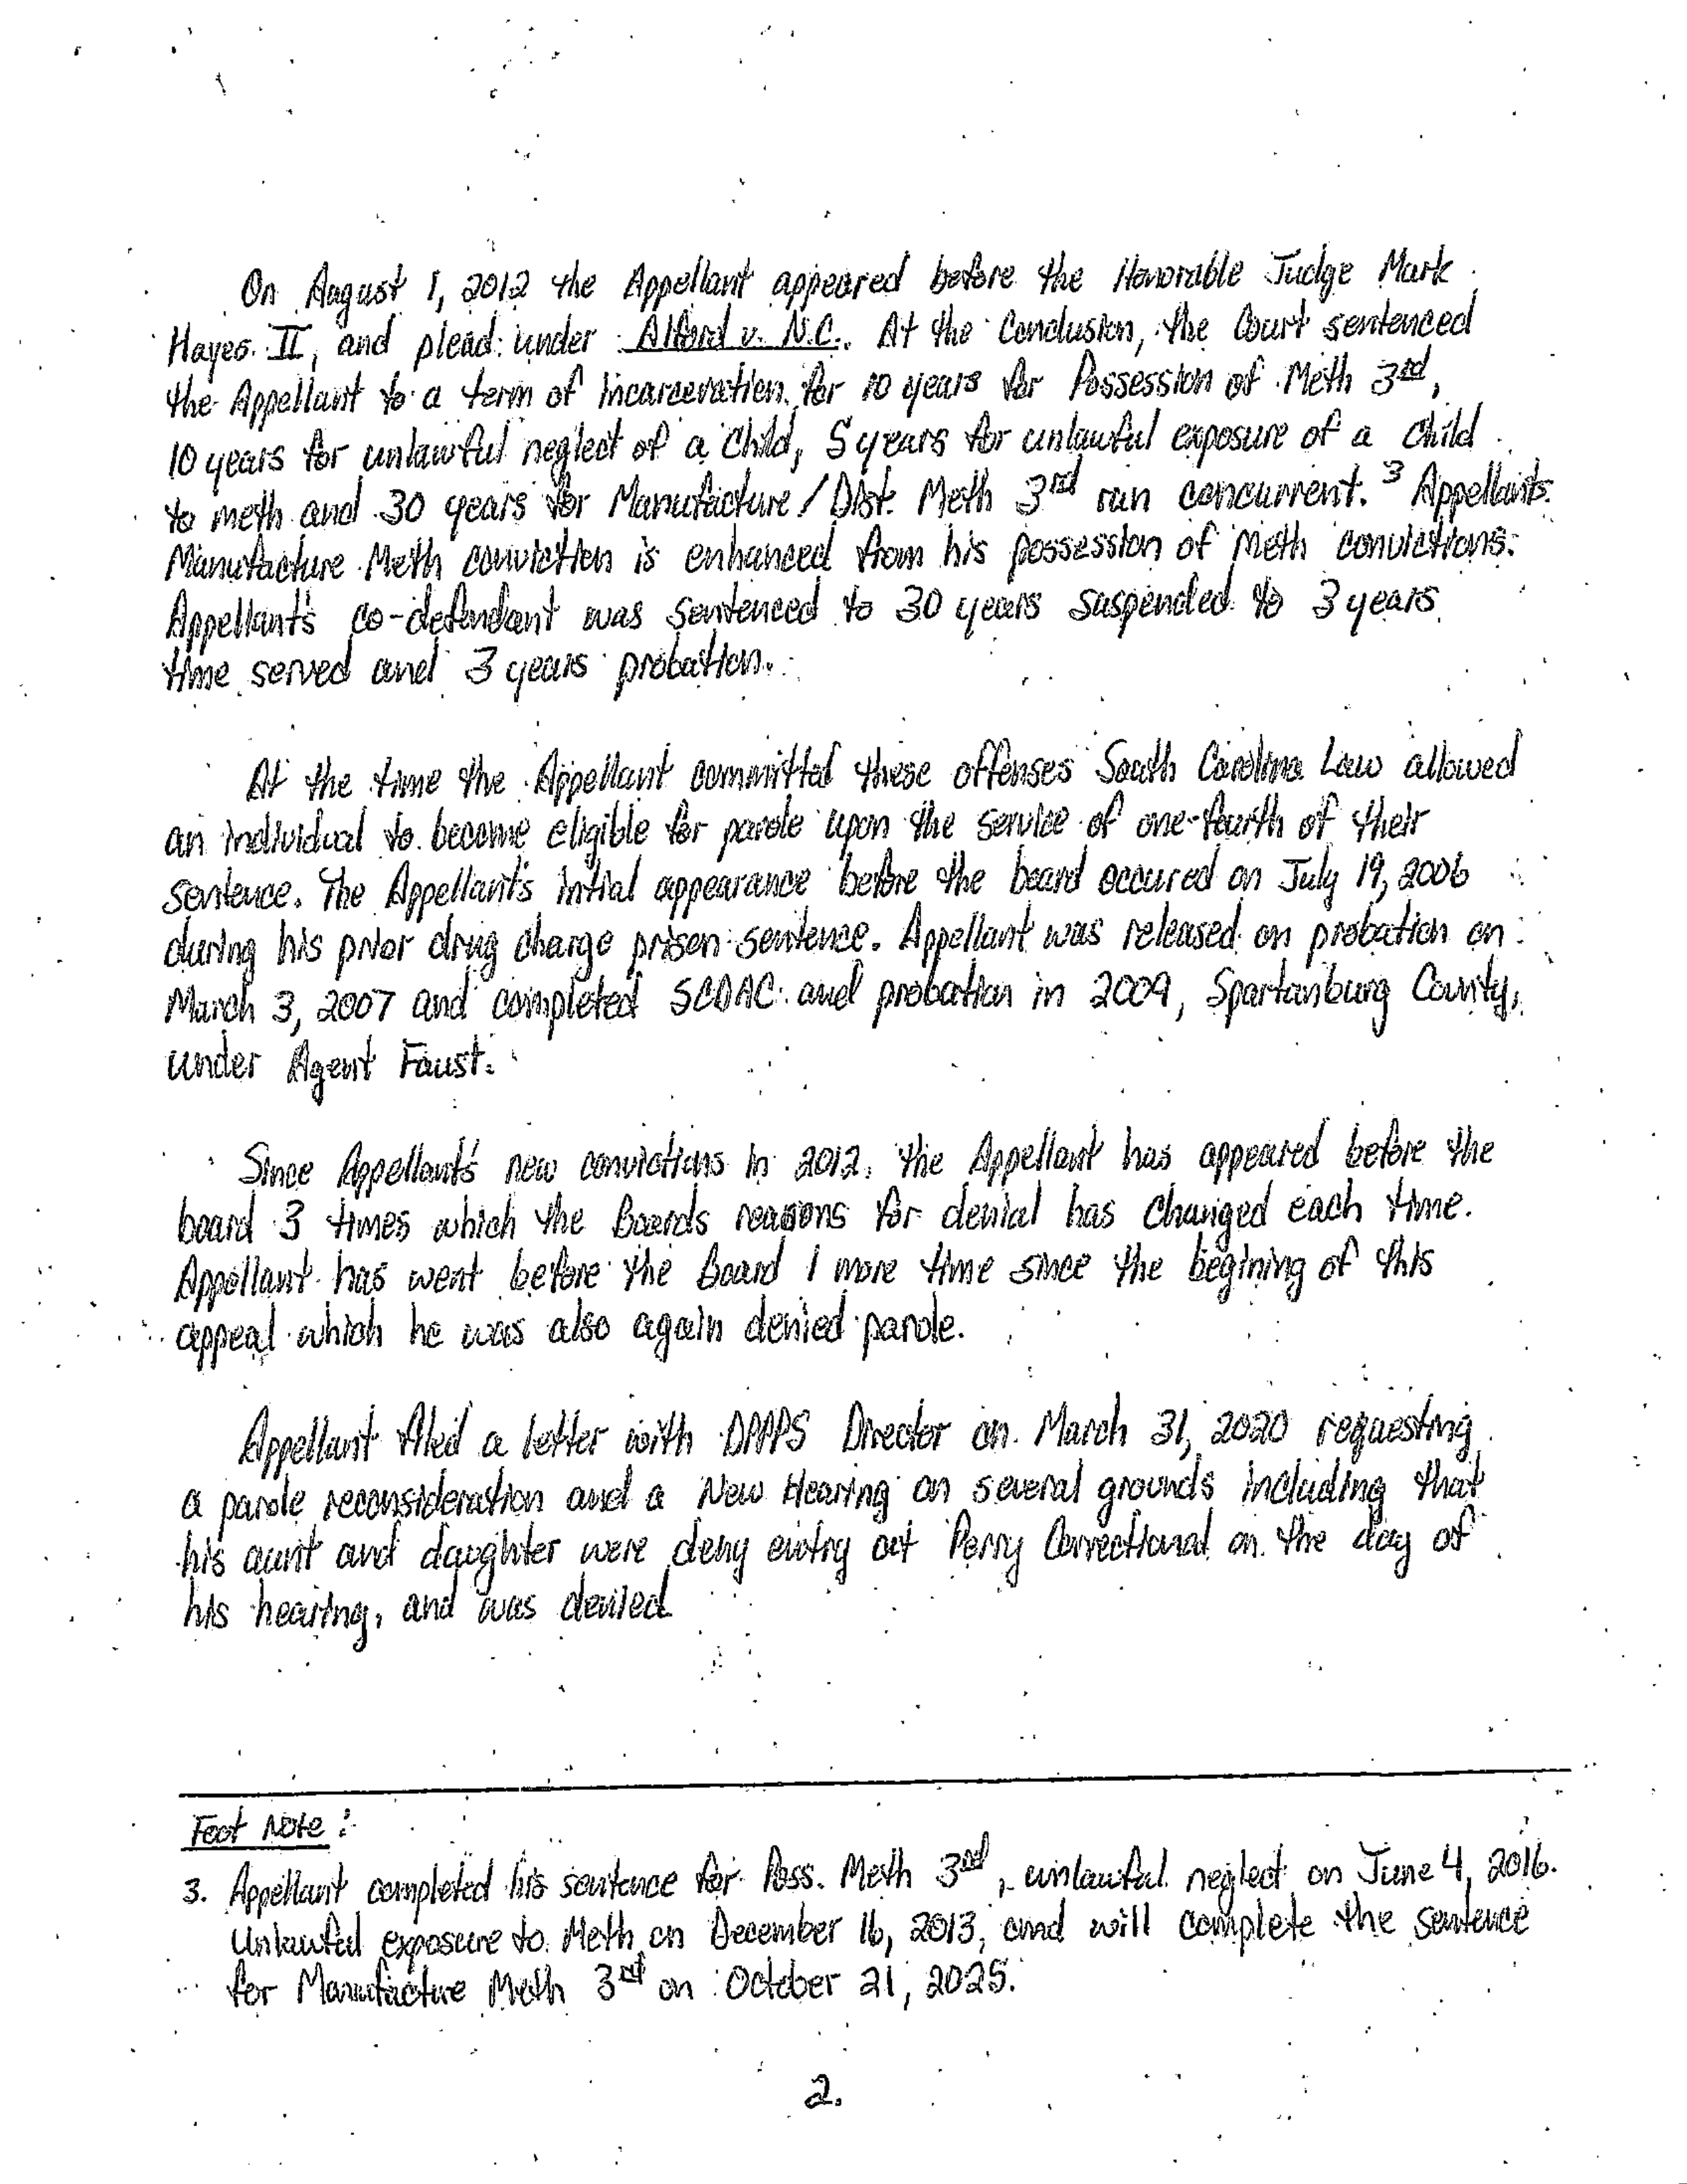 On August 1, 2012 the Appellant appeared before the Honorable Judge Mark
Hayes II, and plead under Alford v. N.C.. At the Conclusion, the Court sentenced
the Appellant to a term of incarceration for 10 years for Possession of Meth 3rd,
10 years for unlawful neglect of a Child, 5 years for unlawful exposure of a Child
to meth and 30 years for Manufacture/Dist. Meth 3rd run concurrent.3 Appellants
Manufacture Meth conviction is enhanced from his possession of Meth convictions.
Appellant's co-defendant was sentenced to 30 years suspended to 3 years
time served and 3 years probation.
At the time the Appellant committed these offenses South Carolina Law allowed
an individual to become eligible for parole upon the service of one-fourth of their
sentence. The Appellant's initial appearance before the board occured on July 19, 2006
during his prior drug charge prison sentence. Appellant was released on probation on
March 3, 2007 and completed SCDAC and probation in 2009, Spartanburg County,
under Agent Faust.
Since Appellant's new convictions in 2012, the Appellant has appeared before the
board 3 times which the Boards reasons for denial has changed each time.
Appellant has went before the Board 1 more time since the begining of this
appeal which he was also again denied parole.
Appellant filed a letter with DPPPS Director on March 31, 2020 requesting
a parole reconsideration and a New Hearing on several grounds including that
his aunt and daughter were deny entry at Perry Correctional on the day of
his hearing, and was denied
Foot Note:
3. Appellant completed his sentence for Poss. Meth 3rd, unlawful neglect on June 4, 2016.
Unlawful exposure to Meth on December 16, 2013, and will complete the sentence
for Manufacture Meth 3rd on October 21, 2025.
2.